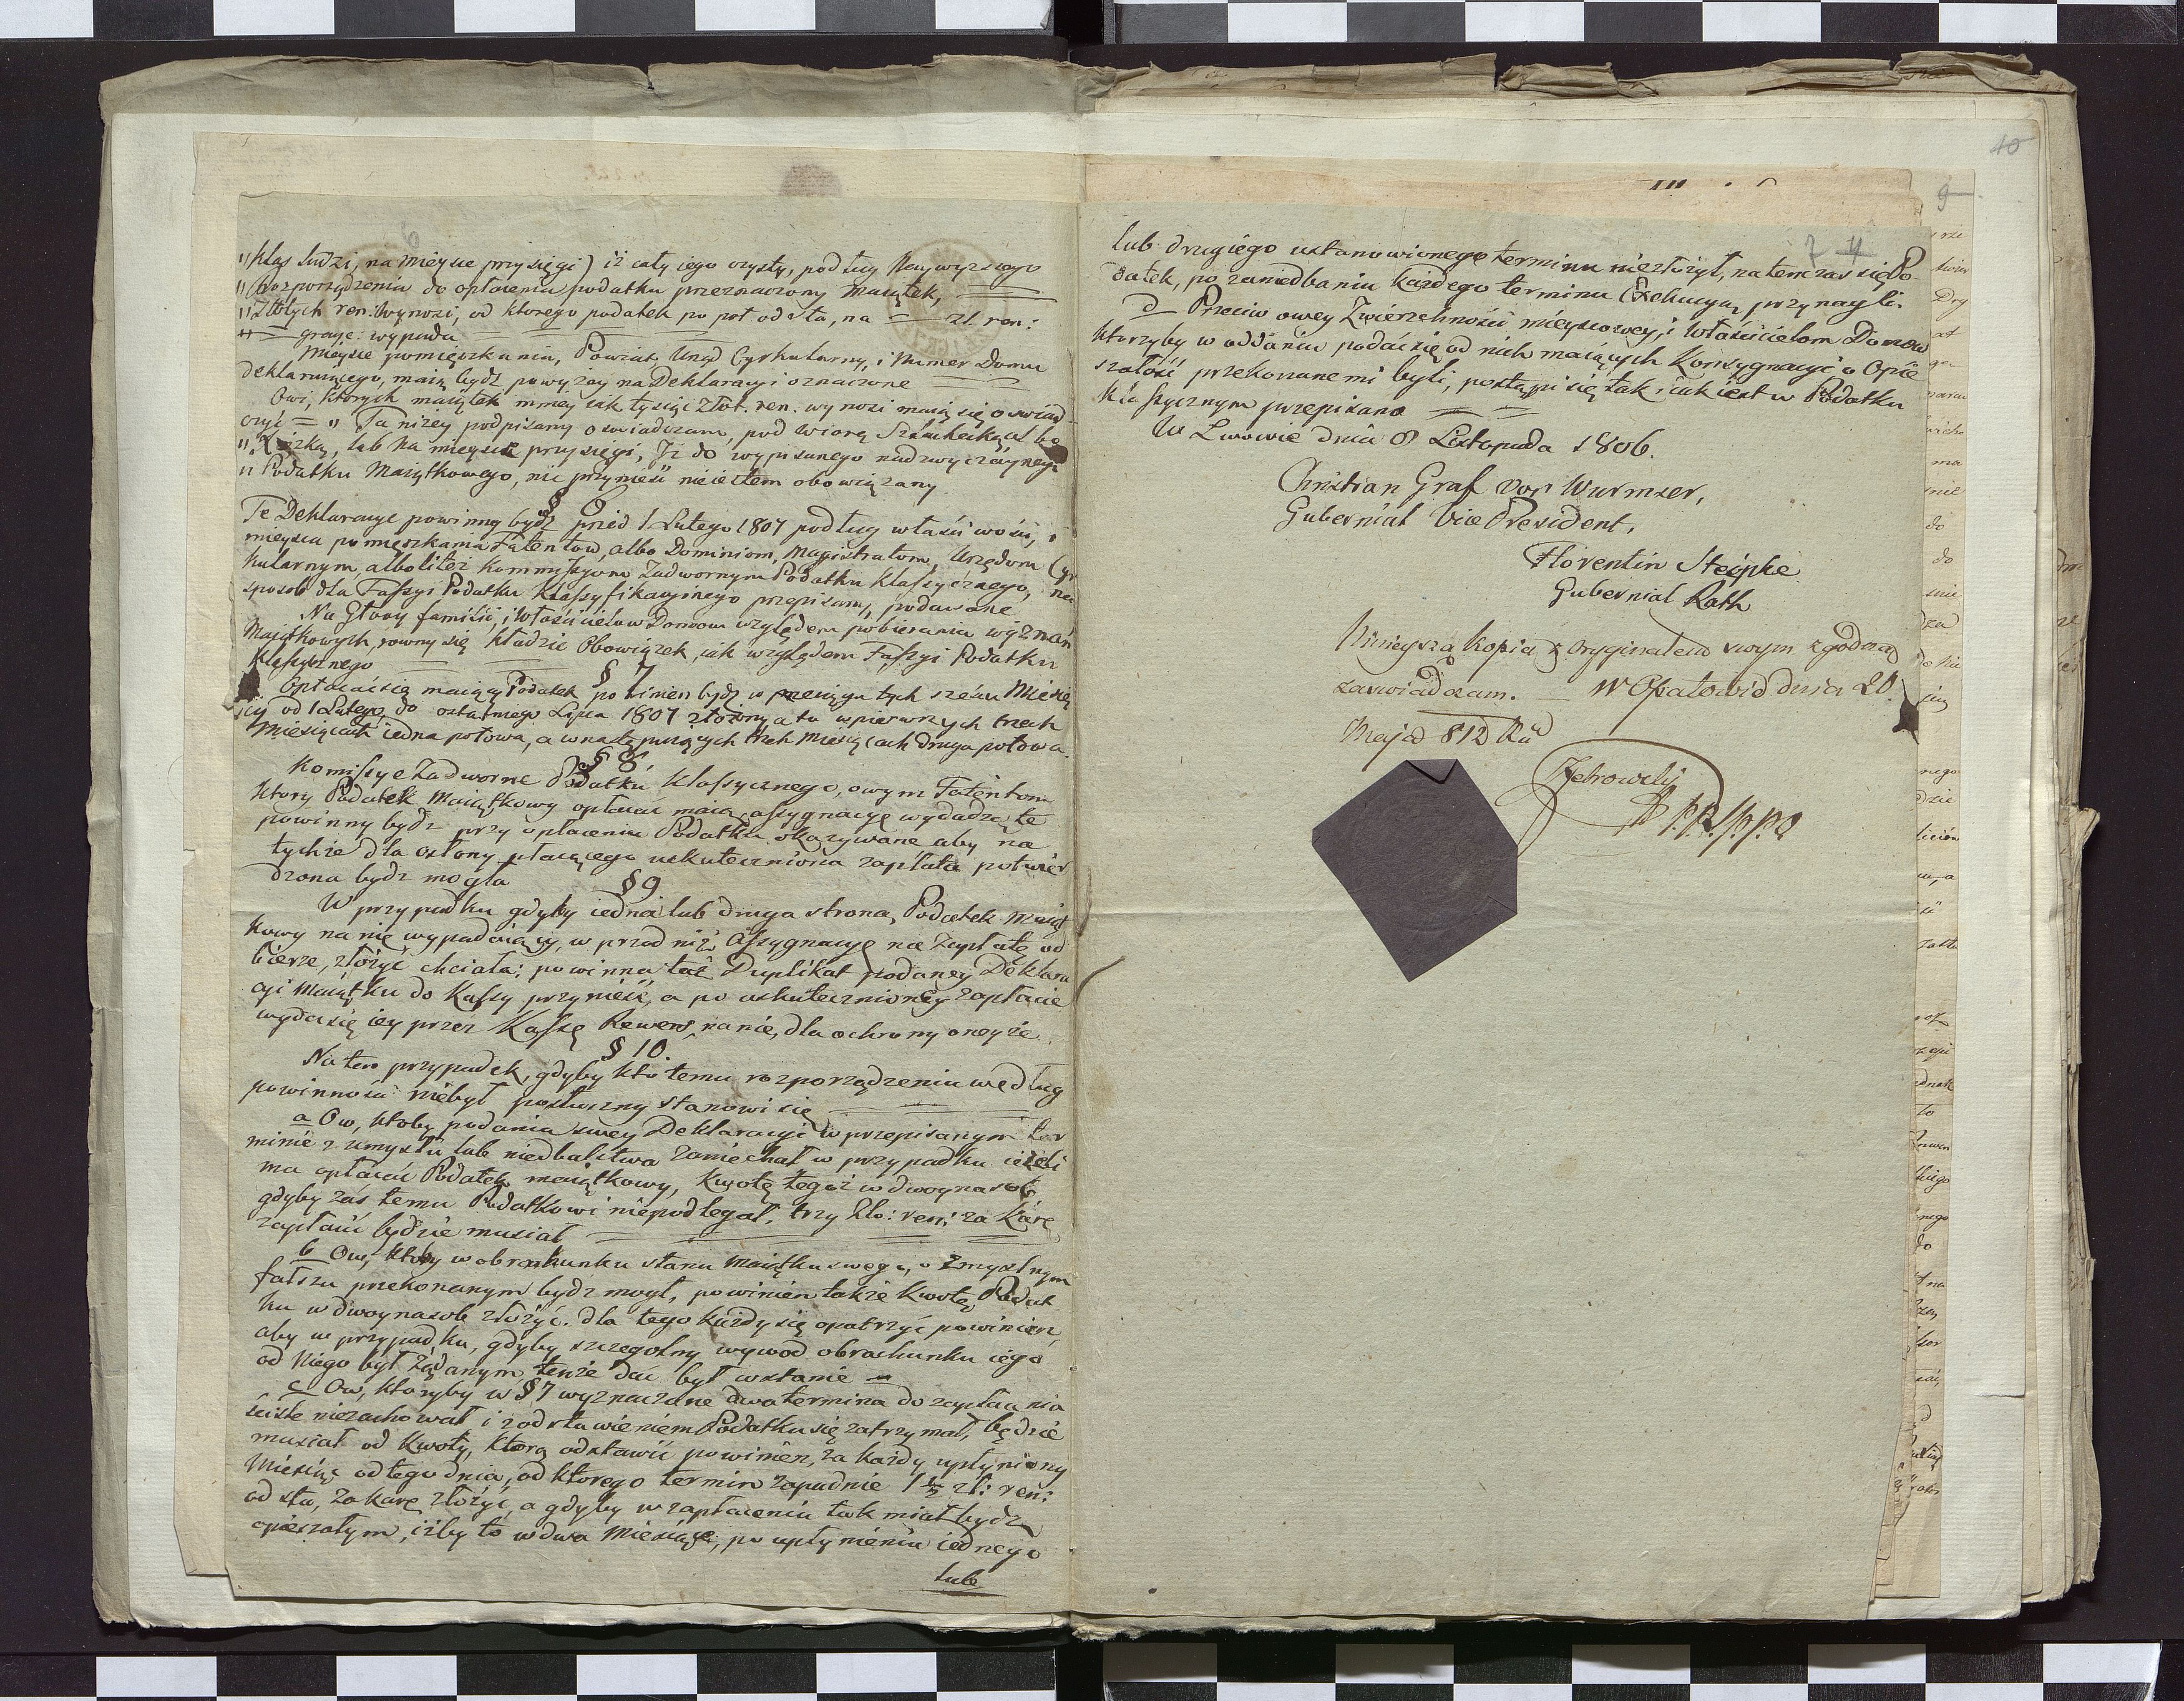 "klas ludzi, na mieysce przysięgi) iż cały iego czysty, podług Naywyższego
"Rozporządzenia do opłacenia podatku przeznaczony Maiątek,
"Złłtych ren: wynosi, od ktorego podatek po poł od sta, na — zł. ren:
"— grayc: wypada
Mieysce pomięszkania, Powiat, Urząd Cyrkularny, i Numer Domu
deklaruiącego, maią bydź powyżey na Deklaracyi oznaczone
Owi, ktorych maiątek mniey iak tysiąc złot. ren. wynosi maią się oswiad
czyć = "Ja niżey podpisany oswiadczam, pod wiarą Szlachecką albo
"Xiążką, lub na mieyscu przysięgi, Iż do wypisanego nadzwyczaynego
"Podatku Maiątkowego, nic przynieść nieiestem obowiązany
§ 6
Te Deklaracye powinny bydź przed 1 Lutego 1807 podług właściwości,
mieysca pomieszkania Fatentow, albo Dominiom, Magistratom, Urzędom Cyr
kularnym, albo liteż Kommissyom Zadwornym Podatku Klassycznego, na
sposob dla Fassyi Podatku Klassyfikacyinego przepisany, podawane
Na Głowy familii, i Właścicielow Domow względem pobierania wyznań
Maiątkowych, rowny się kładzie Obowiązek, iak względem Fassyi Podatku
Klassycznego
§ 7
Opłacać się maiący Podatek powinien bydź w przeciągu tych sześciu Miesię
cy od 1 Lutego do ostatniego Lipca 1807 złożony, a to w pierwszych trzech
Miesiącach iedna połowa, a w następuiących trzech Miesiącach druga połowa.
§ 8.
Komissye Zadworne Podatku Klassycznego, owym Fatentom
ktory Podatek Maiątkowy opłacać maią, assygnacyę wydadzą, te
powinny bydź przy opłaceniu Podatku okazywane aby na
tychże dla osłony płacącego uskuteczniona zapłata potwier
dzona bydź mogła
§ 9
W przypadku gdyby iedna lub druga strona, Podatek Maiąt
kowy na nię wypadaiący, w przod niż Assygnacyę na Zapłatę od
bierze, złożyć chciała; powinna też Duplikat podaney Deklara
cyi Maiątku do Kassy przynieść, a po uskutecznioney zapłacie
wyda się iey przez Kassę Rewers na nie, dla ochrony oneyże.
§ 10.
Na ten przypadek, gdyby kto temu rozporządzeniu według
powinności niebył posłuszny stanowi się
a Ow, ktoby podania swey Deklaracyi w przepisanym ter
minie z umysłu lub niedbalstwa zaniechał w przypadku ieżeli
ma opłacać Podatek maiątkowy, Kwotę tegoż w dwoynasob,
gdyby zas temu Podatkowi niepodlegał, trzy Zło: ren: za karę
zapłacić będzie musiał
b Ow, ktoby w obrachunku stanu Maiątku swego, o zmyslnym
fałszu przekonanym bydź mogł, powinien także Kwotę Podat
ku w dwoynasob złożyć. dla tego każdy się opatrzyć powinien,
aby w przypadku, gdyby szczegolny wywod obrachunku iego
od Niego był żądanym tenże dać był wstanie
c Ow, ktoryby w § 7 wyznaczone dwa termina do zapłacenia
sciśle niezachował i z odstawieniem Podatku się zatrzymał, będzie
musiał od Kwoty, ktorą odstawić powinien, za każdy upłyniony
Miesiąc od tego dnia, od ktorego termin zapadnie 1 1/2 zł: ren:
od sta, za karę złożyć, a gdyby w zapłaceniu tak miał bydź
opieszałym, iżby to w dwa Miesiące, po upłynieniu iednego
lub
10
9
7 4
lub drugiego ustanowionego terminu niezłożył, na tenczas się Po
datek, po zaniedbaniu każdego terminu Exekucyą przynagli.
d Przeciw owey Zwierzchności mieyscowey, i Właścicielom Domow
ktorzyby w oddaniu podać się od nich maiących Konsygnacyi o Opie
szałość przekonanemi byli, postąpi się tak, iak iest w Podatku
Klassycznym przepisano
W Lwowie dnia 8 Listopada 1806.
Christian Graf von Wurmser,
Gubernial Vice President,
Florentin Steipke
Gubernial Rath
Ninieyszą kopią z oryginałem swym zgodną
zaswiadczam. — W Opatowie dnia 20
Maja 812 Ru